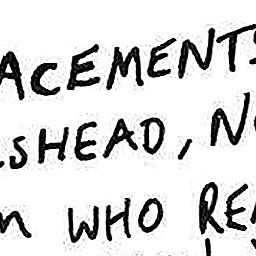 ACEMENTS
SHEAD, NO
m WHO REA